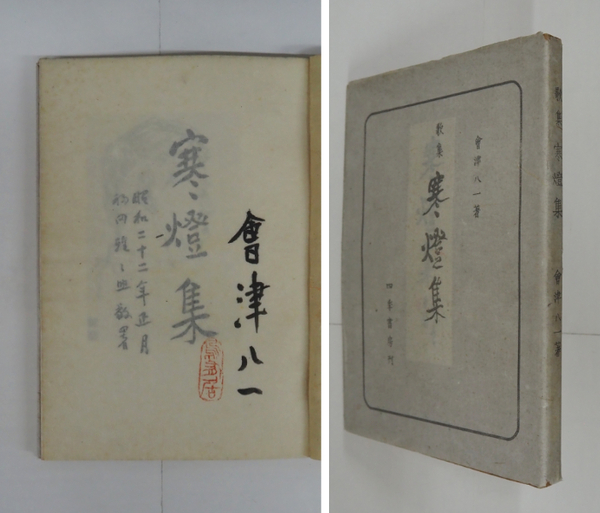 會津八一
寒燈集
昭和二十二年正月
會津八一著
歌集
寒燈集
四季書房刊
歌集 寒燈集 會津八一著